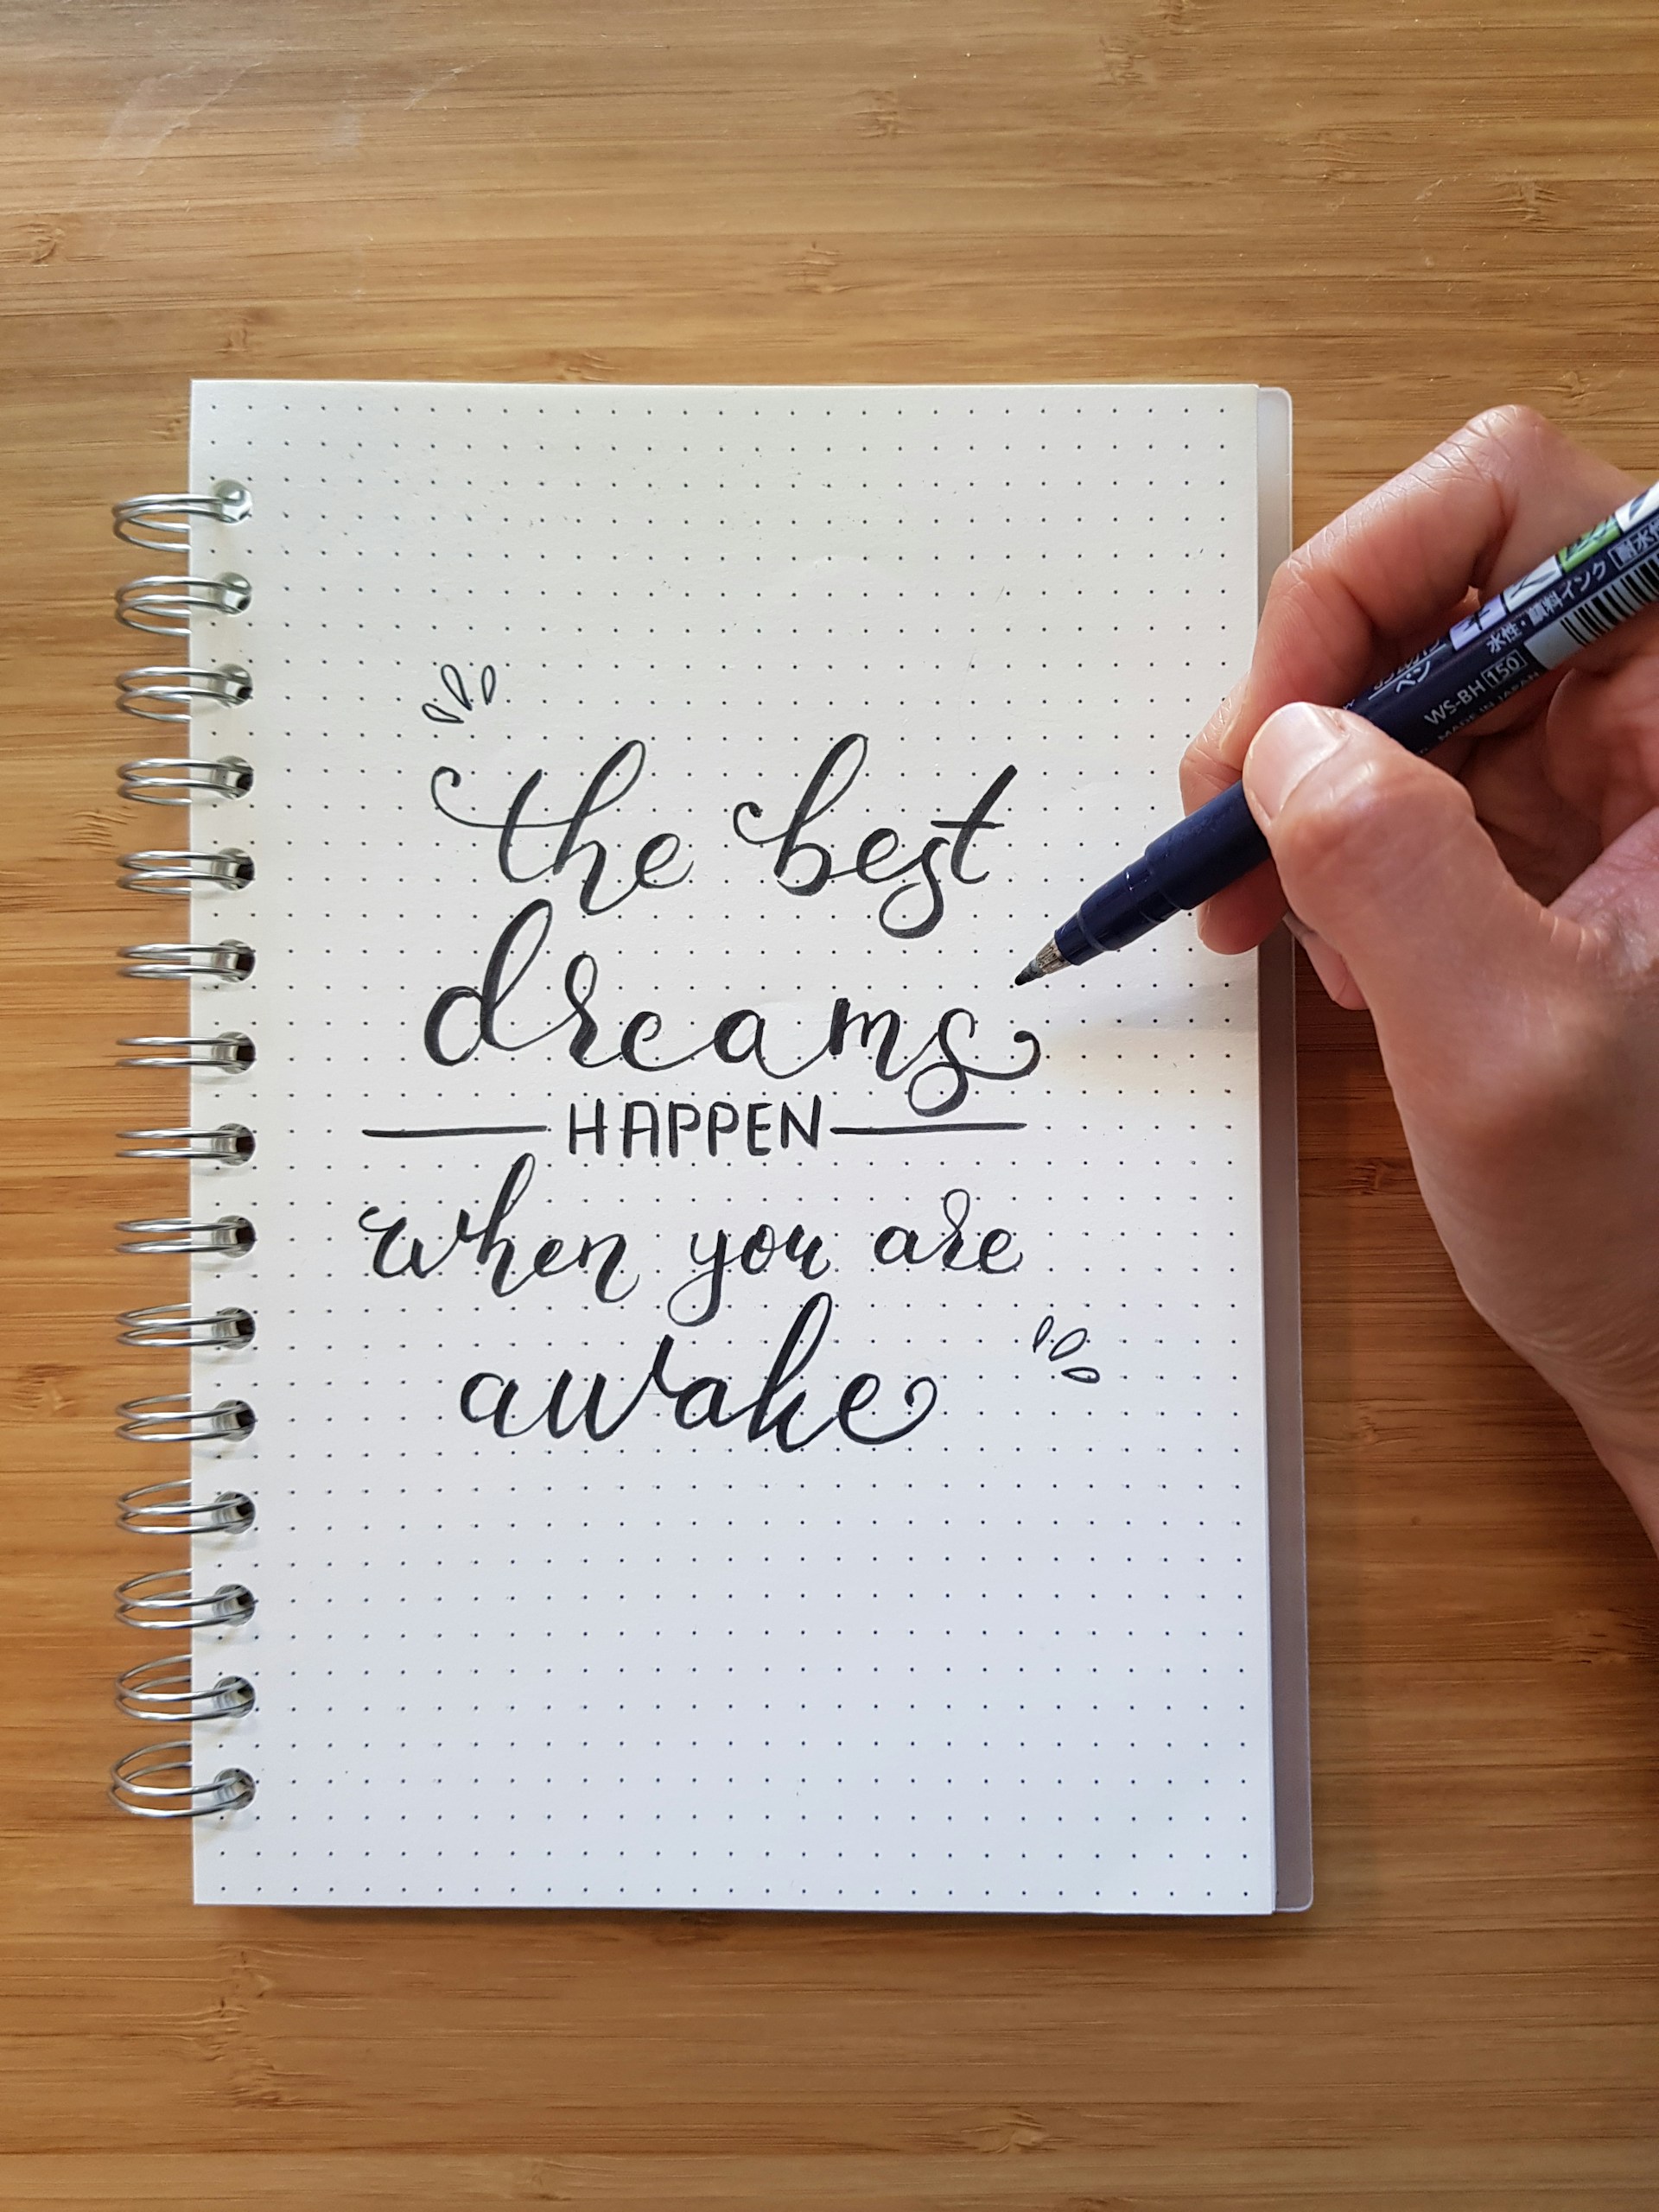 the best
dreams
HAPPEN
when you are
awake
ペン
WS-BH 150
MADE IN JAPAN
水性・顔料インク